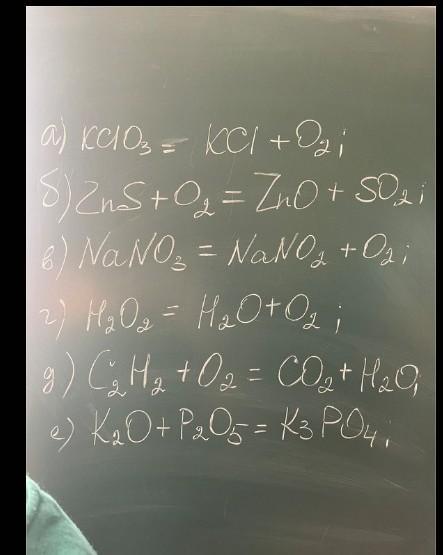 а) KClO₃ = KCl + O₂;
б) ZnS + O₂ = ZnO + SO₂;
в) NaNO₃ = NaNO₂ + O₂;
г) H₂O₂ = H₂O + O₂;
д) C₂H₂ + O₂ = CO₂ + H₂O;
е) K₂O + P₂O₅ = K₃PO₄;